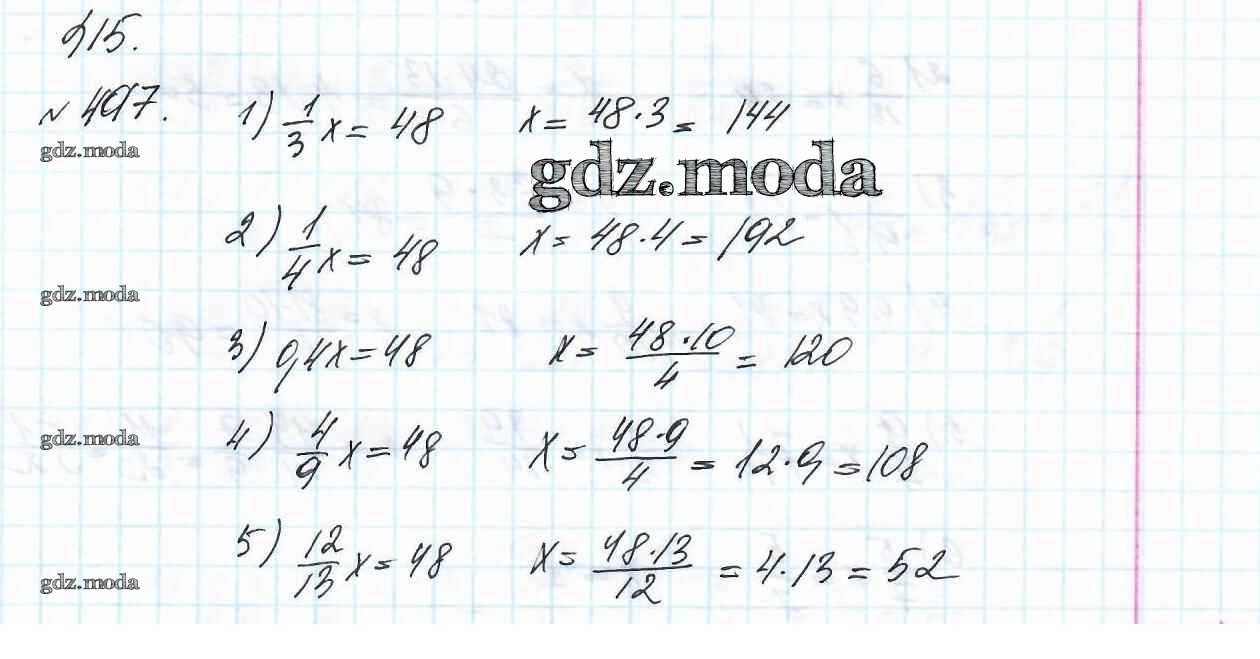 §15.
№ 497.
1) 1/3 x = 48 x = 48·3 = 144
gdz.moda
gdz.moda
2) 1/4 x = 48 x = 48·4 = 192
gdz.moda
3) 0,4x = 48 x = 48·10/4 = 120
4) 4/9 x = 48 x = 48·9/4 = 12·9 = 108
gdz.moda
5) 12/13 x = 48 x = 48·13/12 = 4·13 = 52
gdz.moda